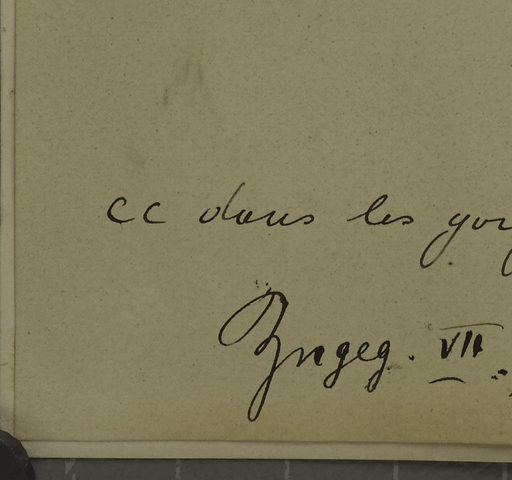 cc dans les gorg
Jngeg. VII